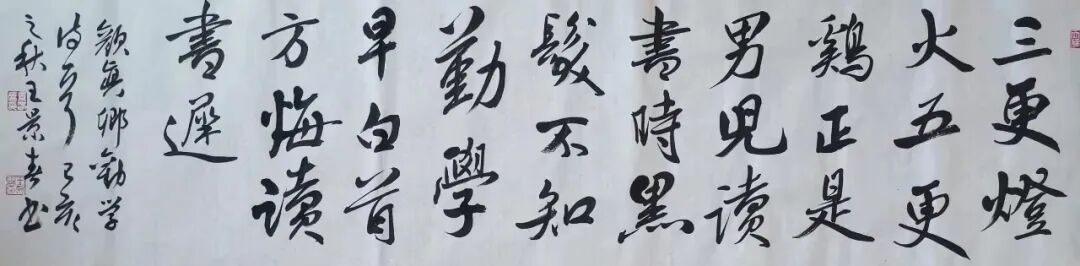 三更燈
火五更
鷄正是
男兒讀
書時黑
髮不知
勤學
早白首
方悔讀
書遲
顔真卿勸学
诗 己亥
之秋王景春书